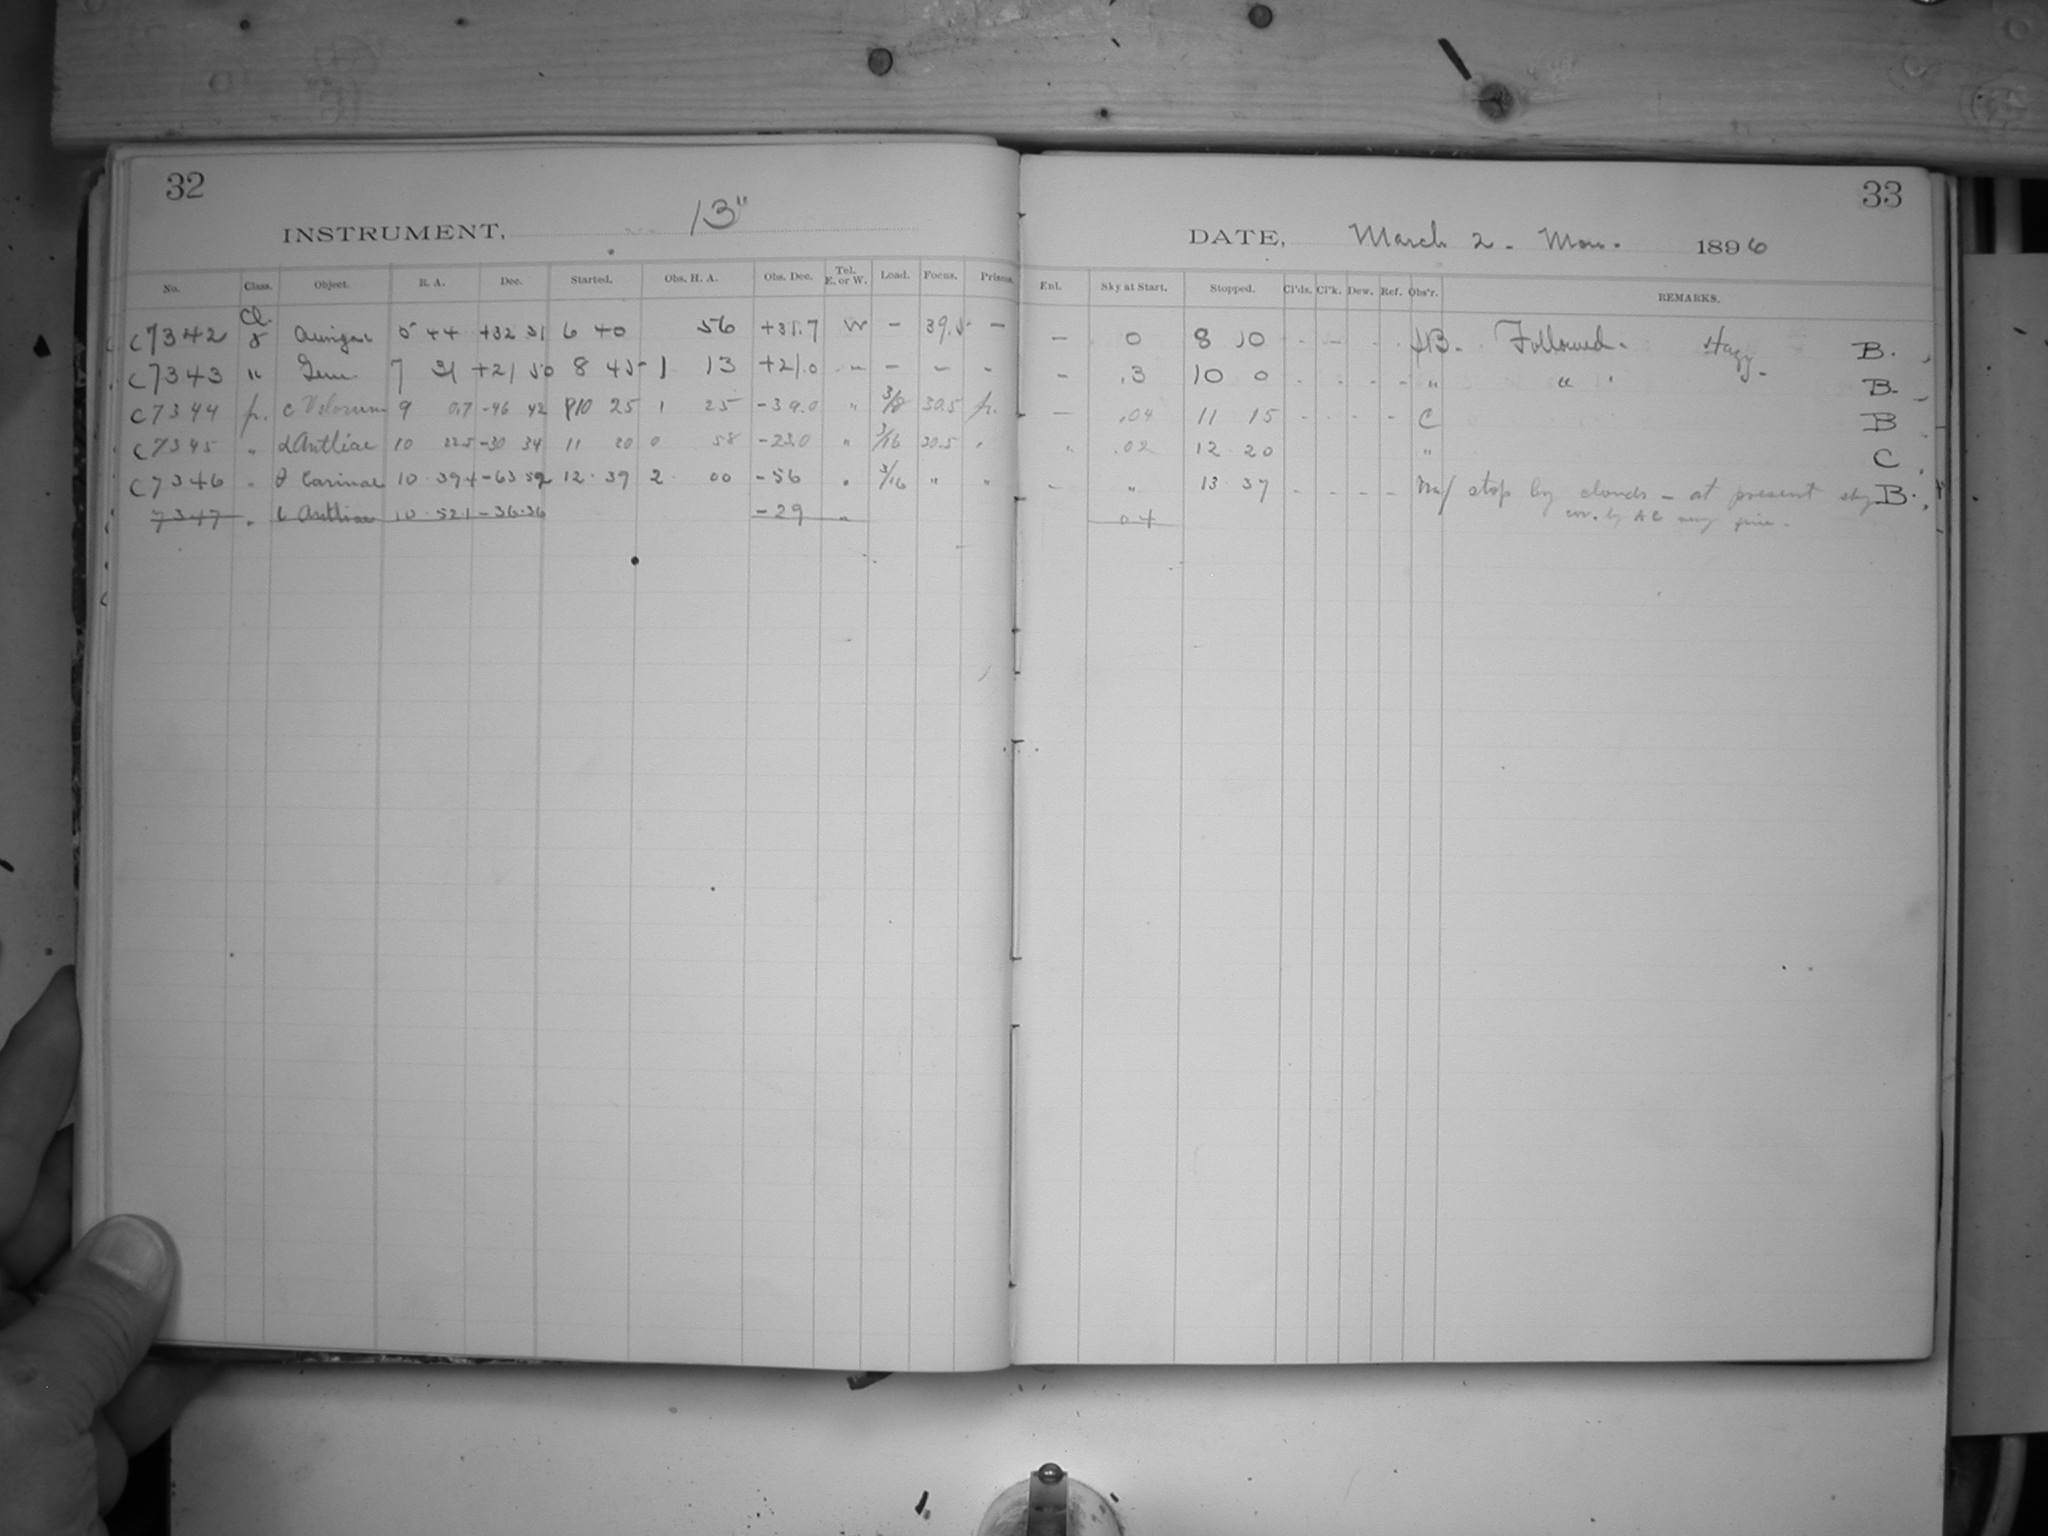 32
INSTRUMENT, 13"
No. Class. Object. R. A. Dec. Started. Obs. H. A. Obs. Dec. Tel. E. or W. Load. Focus. Prisms.
Cl.
C7342 Aurigae 5 44 +32 31 6 40 56 +31.7 W — 39.5 —
C7343 " Gem. 7 31 +21 50 8 45 1 13 +21.0 " — — -
C7344 pr. c Velorum 9 0.7 -46 42 10 25 1 25 -39.0 " 3/8 30.5 pr.
C7345 " α Antliae 10 22.5 -30 34 11 20 0 58 -23.0 " 3/16 30.5 "
C7346 " θ Carinae 10 39.4 -63 52 12 37 2 00 -56 " 3/16 " "
7347 " ι Antliae 10 52.1 -36.36 -29 "
33
DATE, March 2 - Mon. 1896
Enl. Sky at Start. Stopped. Cl'ds. Cl'k. Dew. Ref. Obs'r. REMARKS.
— 0 8 10 - - - - Followed. Hazy. B.
- .3 10 0 - - - - " " " B.
— .04 11 15 - - - - C B
" .02 12 20 " C
- " 13 37 - - - - stop by clouds — at present sky B.
04